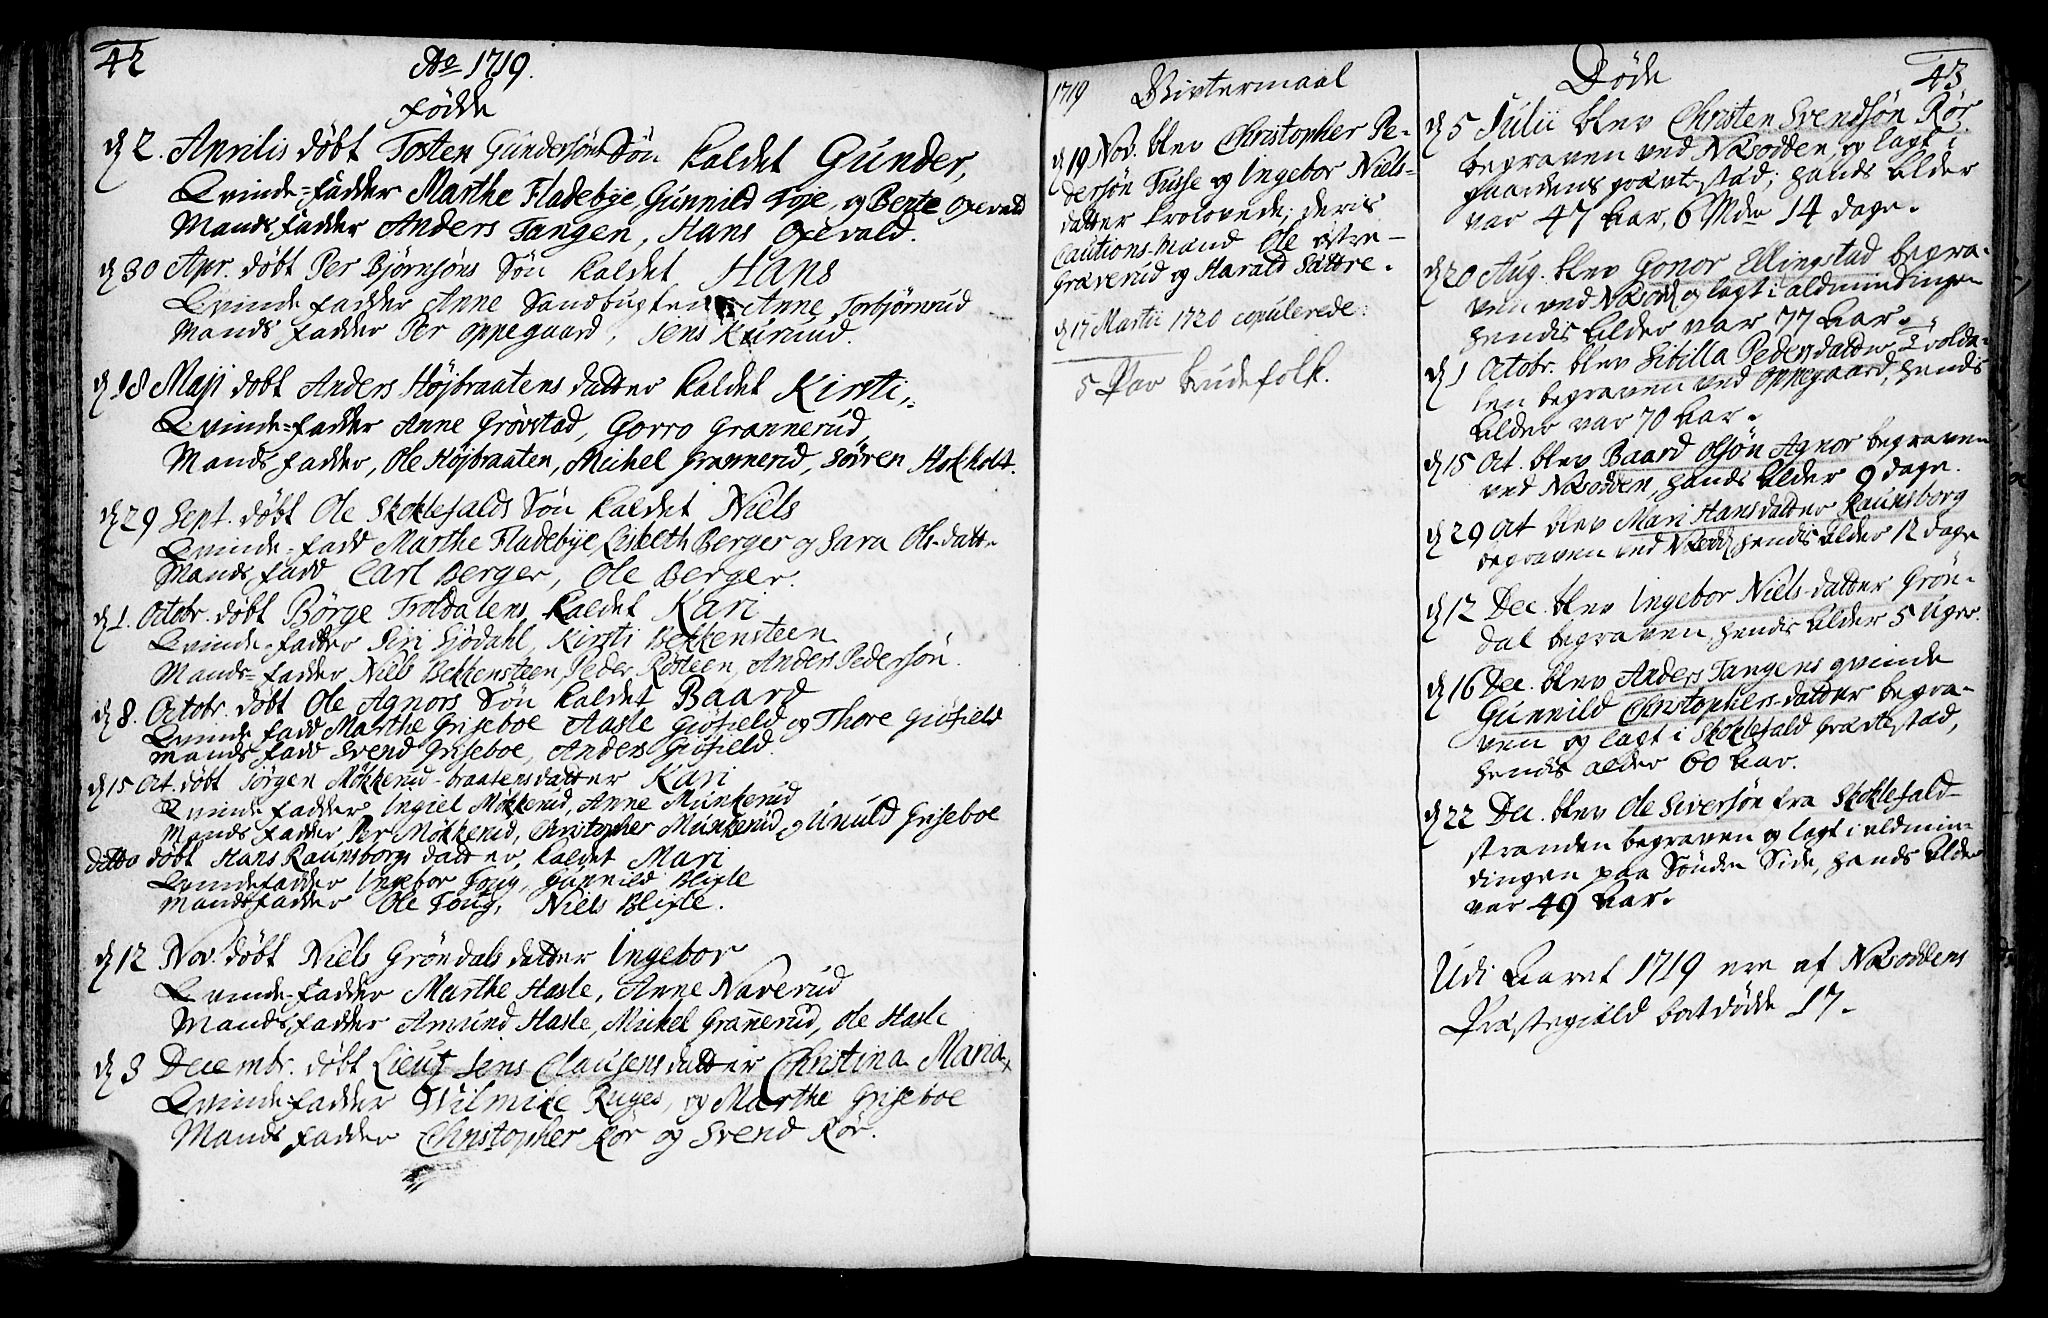 42
Ao 1719.
Fødde
d 2. Aprilis døbt Tosten Gundersøns Søn kaldet Gunder,
Qvinde-Fadder Marthe Fladebye, Gunnild Foje, og Berte Oxevald
Mands Fadder Anders Tangen, Hans Oxevald.
d 30 Apr. døbt Per Bjørnsøns Søn kaldet Hans
Qvinde Fadder Anne Sandbugten Anne Torbjørnrud
Mands Fadder Per Oppegaard, Jens Kurrud.
d 18 Maji døbt Anders Højbraatens datter kaldet Kirsti,
Qvinde-Fadder Anne Grøvstad, Gorro Grannerud
Mands Fadder, Ole Højbraaten, Michel Grannerud, Sören Hokholt.
d 29 Sept. døbt Ole Skoklefalds Søn kaldet Niels
Qvinde-Fadd Marthe Fladebye, Lisbeth Berger og Sara Ols-datt-
Mands Fadd Carl Berger, Ole Berger.
d 1. Octobr. døbt Börge Troldalens kaldet Kari
Qvinde-Fadder Siri Sjödahl, Kirsti Bekkensteen
Mands-Fadder Niels Bekkensteen, Peder Rosteen, Anders Pedersøn.
d 8. Octobr. døbt Ole Agnors Søn kaldet Baard
Qvinde Fadd Marthe Griseboe Aasle Giøfield og Thore Giøfield
Mands Fadd Svend Griseboe, Anders Giøfield.
d 15 Oct. døbt Jörgen Møkkerud-braatens datter Kari
Qvinde Fadder Ingiel Møkkerud, Anne Munkerud
Mands Fadder, Per Møkkerud, Christopher Munkerud og Unuld Griseboe
ditto døbt Hans Raunsborgs datter, kaldet Mari
Qvindefadder Ingebor Toug, Gunnild Blixle
Mandsfadder Ole Toug, Niels Blixle.
d 12 Nov. døbt Niels Gröndals datter Ingebor
Qvinde-Fadder Marthe Hasle, Anne Naverud
Mands Fadder Amund Hasle, Michel Grannerud, Ole Hasle
d 3 Decembr. døbt Lieut Jens Clausens datter Christina Maria
Qvinde-Fadder Wilmike Ruges, og Marthe Griseboe
Mands Fadder Christopher Rør og Svend Rør.
1719 Vivtermaal
d 19 Nov. blev Christopher Pe-
dersøn Tusse og Ingebor Niels-
datter trolovede; deris
Cautions-Mand Ole østre-
Graverud og Harald Sættre.
d 17 Martii 1720 copulerede:
5 Par Brudefolk.
43
Døde
d 5 Julii blev Christen Svendsøn Rør
begraven ved Næsodden, og lagt i
gaardens grævtestæd; hands Alder
var 47 Aar, 6 Mdr 14 dage.
d 20 Aug. blev Gonor Ellingstad begra-
ven ved Næsodd og lagt i aldmindingen
hendis Alder var 77 Aar.
d 1 Octobr. blev Sibilla Pedersdatter Trolda-
len begraven ved Oppegaard, hendis
Alder var 70 Aar.
d 15 Oct. blev Baard Olsøn Agnor begraven
ved Næsodden, hands Alder 9 dage.
d 29 Oct blev Mari Hansdatter Raunsborg
begraven ved Næsodd, hendis Alder 12 dage
d 12 Dec. blev Ingebor Niels-datter Grøn-
dal begraven, hendis Alder 5 Uger.
d 16 Dec. blev Anders Tangens qvinde
Gunnild Christophers-datter begra-
ven og lagt i Skoklefald Grævtestæd,
hendis alder 60 Aar.
d 22 Dec. blev Ole Siversøn fra Skoklefald-
stranden begraven og lagt i aldmin-
dingen paa Søndre Side, hands Alder
var 49 Aar.
Udi Aaret 1719 ere af Næsoddens
Præstegiæld bortdødde 17.